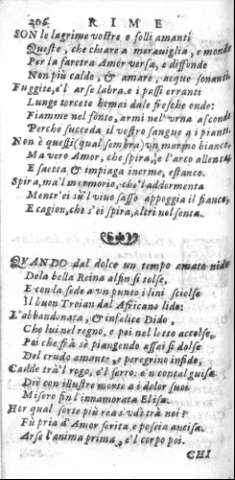 206. RIME
SON le lagrime vostre o folli amanti
Queste, che chiare a merauiglia, e monde
Per la faretra Amor versa, e diffonde
Non più caldo, & amare, acque sonanti.
Fuggite, e'l arse labra e i passi erranti
Lunge torcete homai dale fresche onde:
Fiamme nel fonte, armi nel'vrna asconde
Perche succeda il vostro sangue a i pianti.
Non è questi (qual sembra) un marmo bianco,
Ma vero Amor, che spira, e l'arco allenta,
E saetta & impiaga inerme, e stanco.
Spira, ma'l mormorio, che l'addormenta
Mentr'ei sù'l viuo sasso appoggia il fianco,
E cagion, che s'ei spira, altri nol senta.
QUANDO dal dolce un tempo amato nido
Dela bella Reina al fin si tolse,
E con la fede a un punto i lini sciolse
Il buon Troian dal Africano lido:
L'abbandonata, & infelice Dido,
Che lui nel regno, e poi nel letto accolse,
Poi che frà sè piangendo assai si dolse
Del crudo amante, e peregrino infido,
Cadde trà'l rogo, e'l ferro: e'n cotal guisa
Diè con illustre morte a i dolor suoi
Misero fin l'innamorata Elisa.
Her qual sorte più rea s'vdì trà noi?
Fù pria d'Amor ferita, e poscia ancisa.
Arse l'anima prima, e'l corpo poi.
CHI